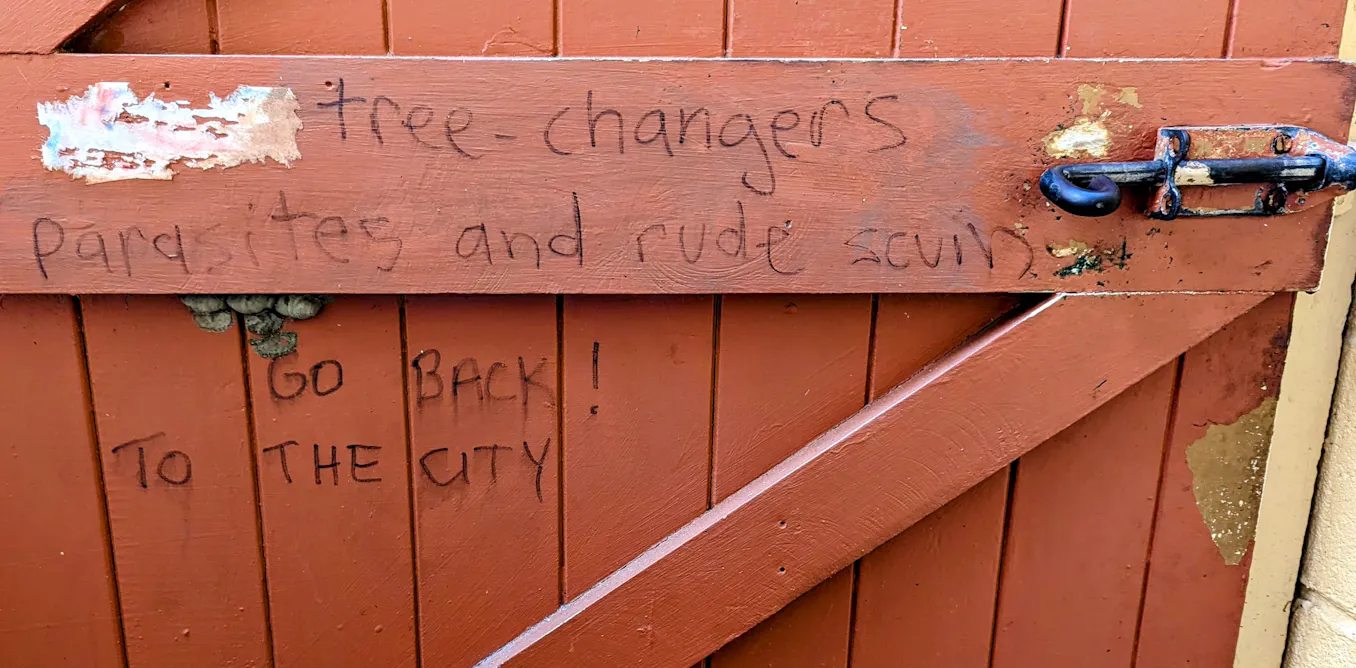 tree-changers
parasites and rude scum
GO BACK!
TO THE CITY